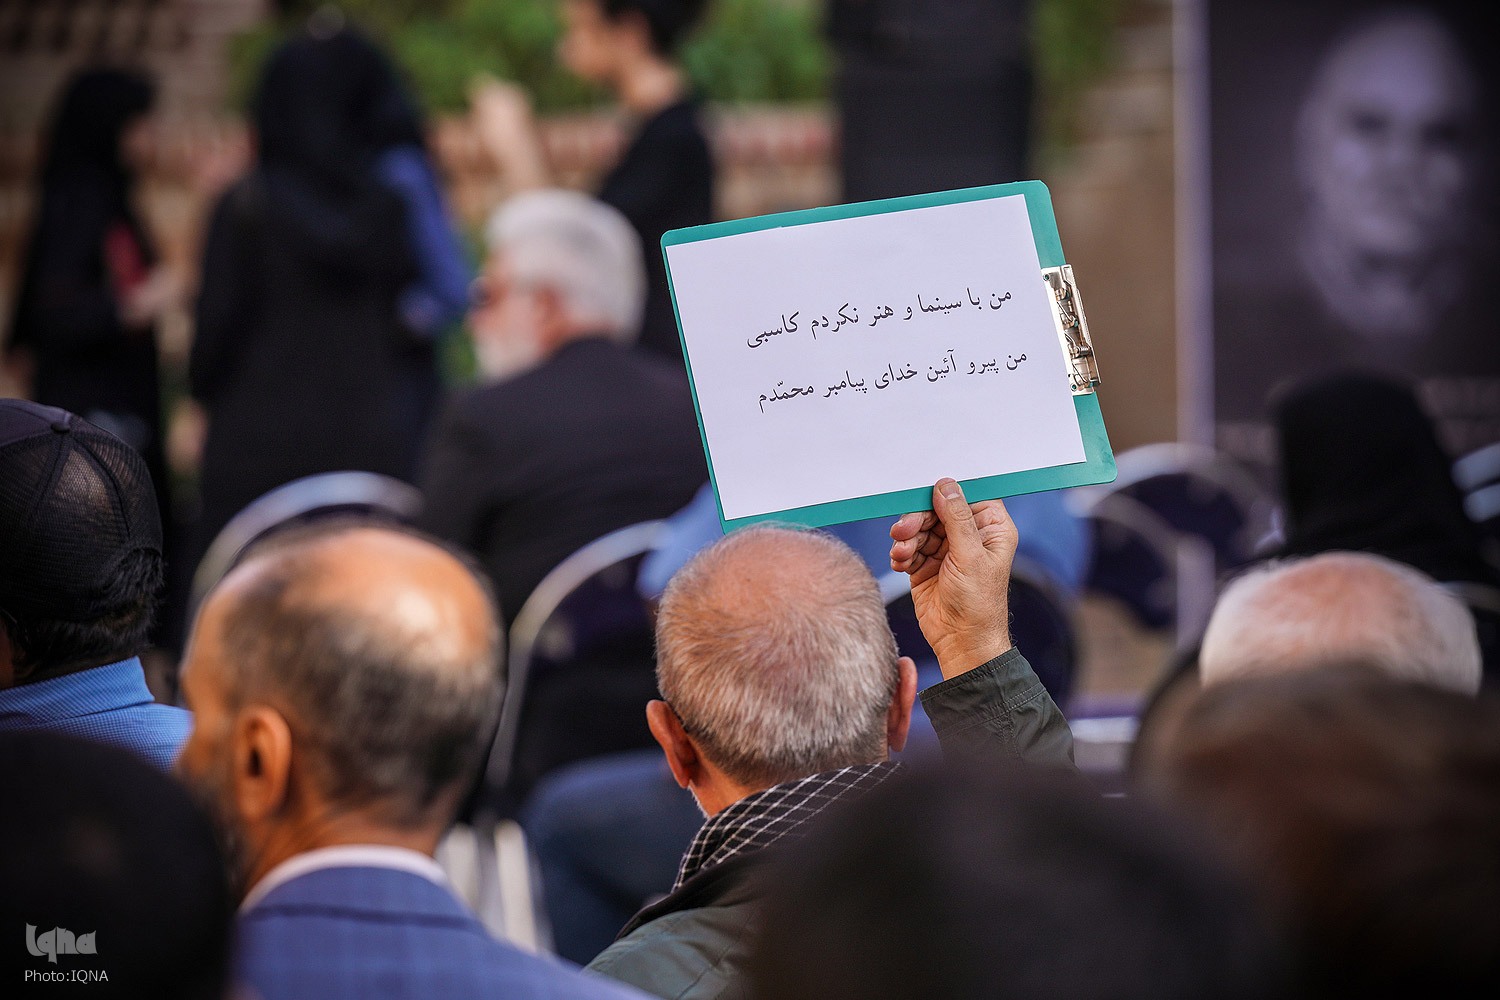 من با سینما و هنر نکردم کاسبی
من پیرو آئین خدای پیامبر محمّدم
iqna
Photo:IQNA